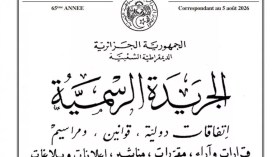 65ème ANNEE
Correspondant au 5 août 2026
الجمهورية الجزائرية
الديمقراطية الشعبية
الجريدة الرسمية
إتفاقات دولية ، قوانين ، ومراسيم
قرارات وآراء ، مقررات ، مناشير ، إعلانات وبلاغات